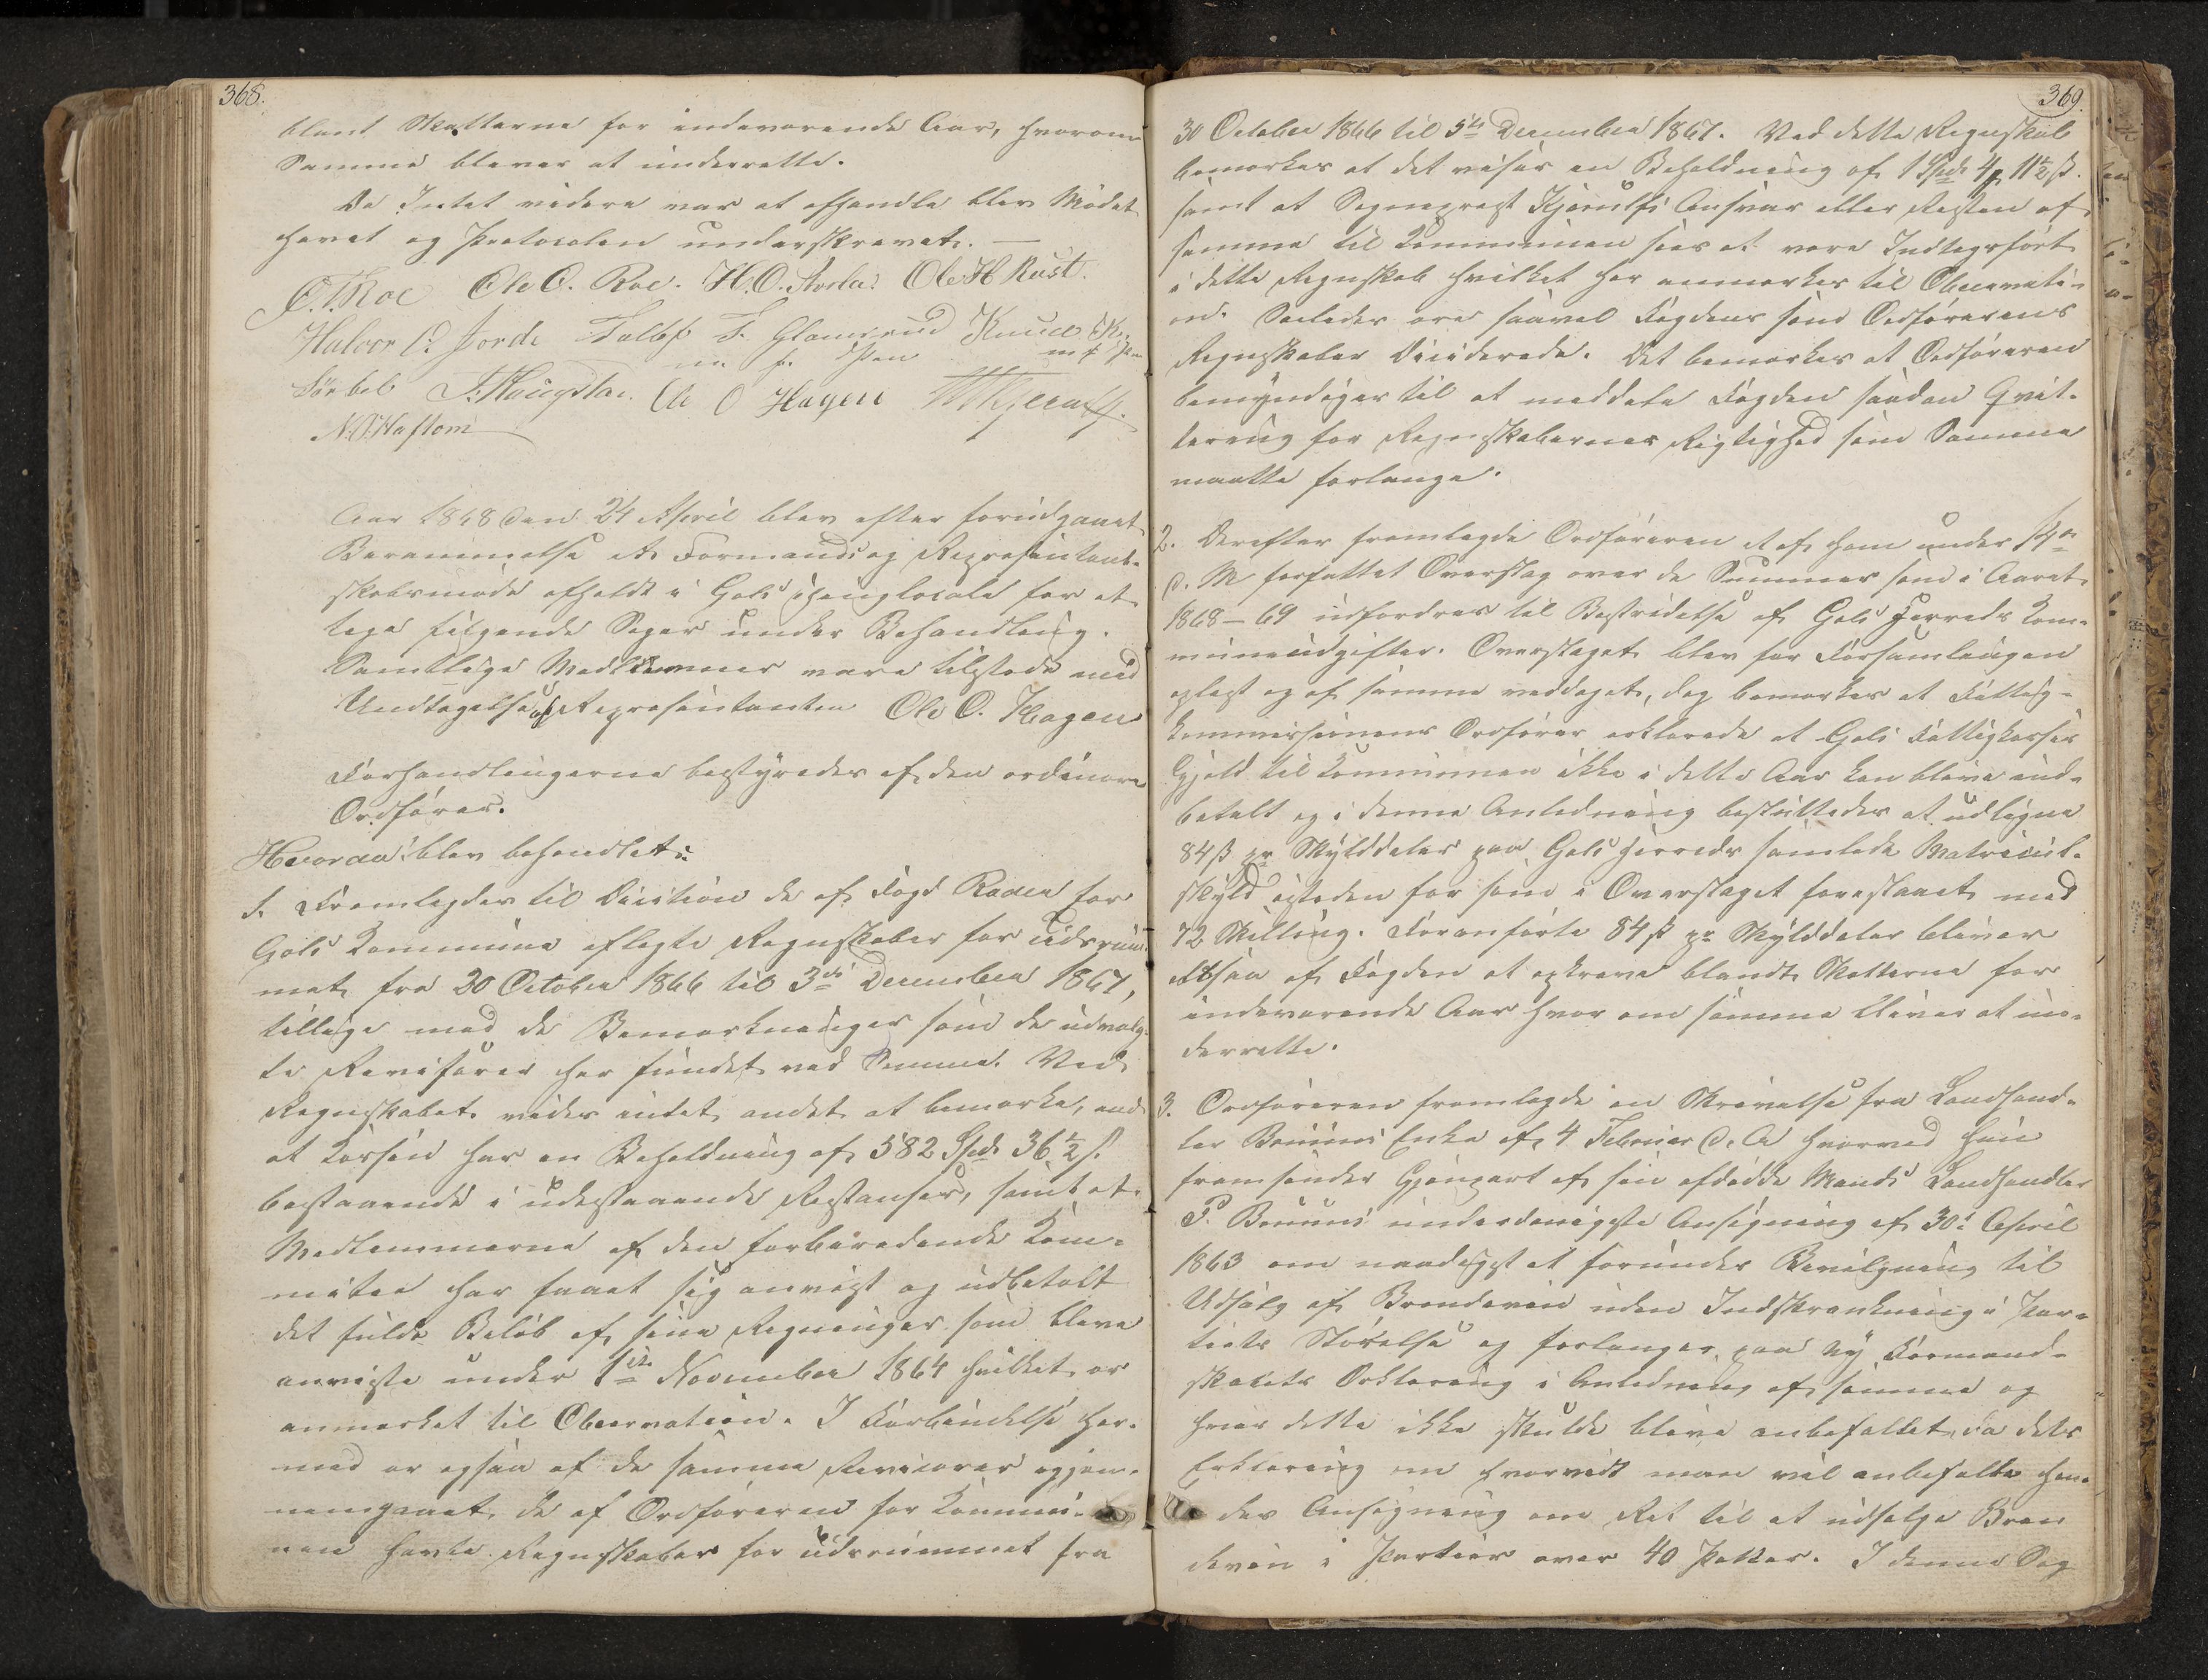 368.
blant Skatterne for indeværende Aar, hvorom
Samme bliver at underrette.
Da Intet videre var at afhandle blev Mödet
hævet og Protocolen underskrevet. —
O. T. Roe Ole O. Roe. H. O. Storla. Ole H Rust.
Halvor O. Jorde Tollef T. Glamerud Knud K.
m. p. Pen m p Pen
Sörbel T. Haugstai. Ole O Hagen
N. O. Haftorn
Aar 1868 den 24 April blev efter forudgaaet
Berammelse et Formands og Repræsentant-
skabsmöde afholdt i Gols Thinglocale for at
tage fölgende Sager under Behandling.
Samtlige Medlemmer vare tilstede med
Undtagelse af Repræsentanten Ole O. Hagen
Forhandlingerne bestyredes af den ordinære
Ordförer.
Hvorda blev behandlet:
1. Fremlagdes til Decition de af Fogd Rader for
Gols Kommune aflagte Regnskaber for Tidsrum-
met fra 20 October 1866 til 3die December 1867,
tillige med de Bemærkninger som de udvalg-
te Revisorer har fundet ved Samme. Ved
Regnskabet vides intet andet at bemærke, end
at Kassen har en Beholdning af 582 Spd. 36½ ß.
bestaaende i udestaaende Restanser, samt at
Medlemmerne af den forberedende Kom-
mitee har faaet sig anvist og udbetalt
det fulde Belöb af sine Regninger som bleve
anviste under 1ste November 1864 hvilket er
anmærket til Observation. I Forbindelse her-
med er ogsaa af de samme Revisorer igjen-
nemgaaet, de af Ordföreren for Kommu-
nen förte Regnskaber for Tidsrummet fra
369.
30 October 1866 til 5te December 1867. Ved dette Regnskab
bemærkes at det viser en Beholdning af 1 Spd. 4 11½ ß.
samt at Sogneprest Kjerulfs Ansvar eller Resten af
samme til Kommunen sees at være Indtægtsfört
i dette Regnskab hvilket her anmærkes til Observati-
on. Saaledes ere saavel Fogdens som Ordförerens
Regnskaber Deciderede. Det bemærkes at Ordföreren
bemyndiges til at meddele Fogden saadan Qvit-
tering for Regnskabernes Rigtighed som Samme
maatte forlange.
2. Derefter fremlagde Ordföreren et af ham under
d. M forfattet Overslag over de Summer som i Aaret
1868 – 69 udfordres til Bestridelse af Gols Herreds Kom-
muneudgifter. Overslaget blev for Forsamlingen
oplæst og af samme vedtaget, dog bemærkes at Fattig-
kommissionens Ordförer erklærede at Gols Fattigkasses
Gjeld til Kommunen ikke i dette Aar kan blive ind-
betalt og i denne Anledning besluttedes at udligne
84 ß pr Skylddaler paa Gols Herreds samlede Matricul-
skyld isteden for som i Overslaget foreslaaet med
72 Skilling. Foranförte 84 ß pr Skylddaler bliver
altsaa af Fogden at opkræve blandt Skatterne for
indeværende Aar hvor om samme bliver at un-
derrette.
3. Ordföreren fremlagde en Skrivelse fra Landhand-
ler Bruuns Enke af 4 Februar d. A hvorved hun
fremsender Gjenpart af sin afdöde Mands Landhandler
P. Bruuns underdanigste Ansögning af 30te April
1863 om naadigst at forundes Bevilgning til
Udsalg af Brændeviin uden Indskrænkning i Par-
tiets Störrelse og forlanger paa ny Formand-
skabets Erklæring i Anledning af samme og
hvis dette ikke skulde blive anbefallet, da dets
Erklæring om hvorvidt man vil anbefalle hen-
des Ansögning om Ret til at udsælge Bræn
deviin i Partier over 40 Potter. I denne Sag